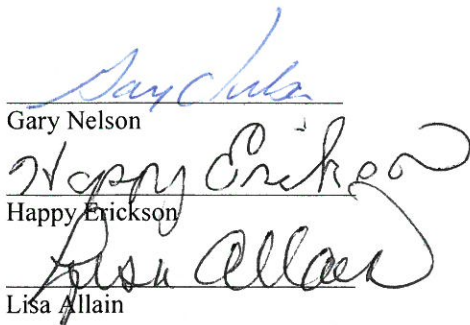 Gary Nelson
Gary Nelson
Happy Erickson
Happy Erickson
Lisa Allain
Lisa Allain